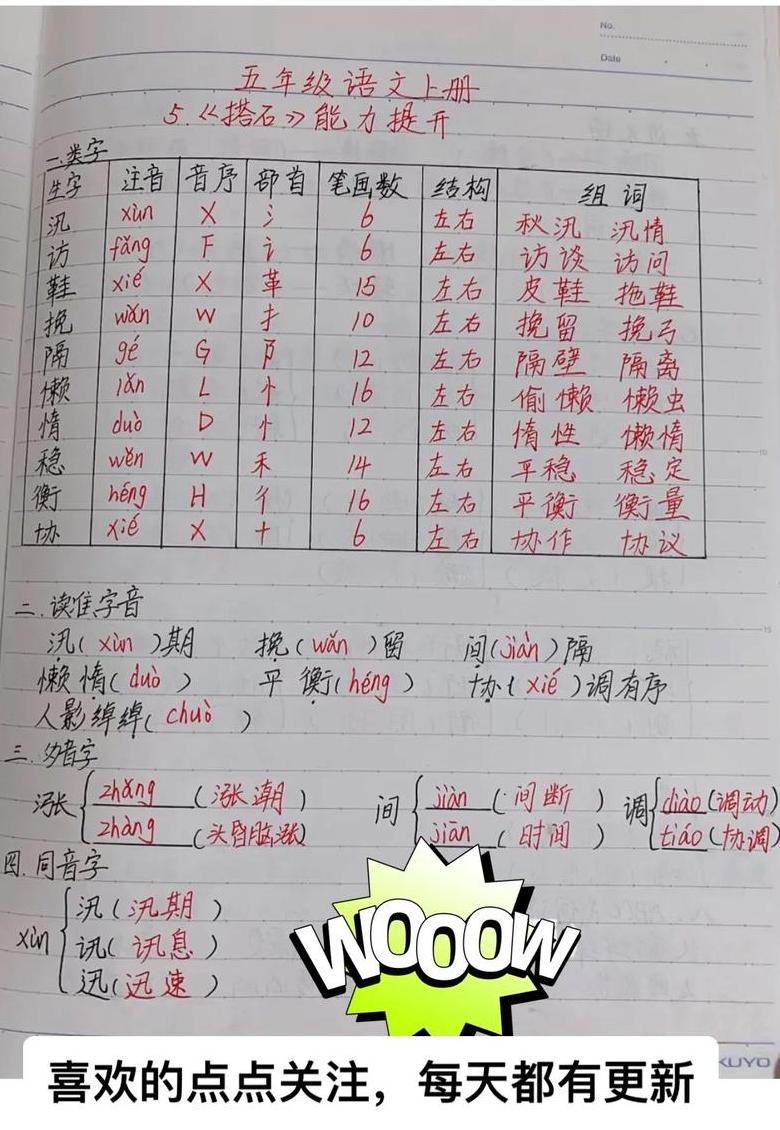 No.
Date
五年级语文上册
5.《搭石》能力提升
一.类字
生字 注音 音序 部首 笔画数 结构 组词
汛 xùn X 氵 6 左右 秋汛 汛情
访 fǎng F 讠 6 左右 访谈 访问
鞋 xié X 革 15 左右 皮鞋 拖鞋
挽 wǎn W 扌 10 左右 挽留 挽弓
隔 gé G 阝 12 左右 隔壁 隔离
懒 lǎn L 忄 16 左右 偷懒 懒虫
惰 duò D 忄 12 左右 惰性 懒惰
稳 wěn W 禾 14 左右 平稳 稳定
衡 héng H 彳 16 左右 平衡 衡量
协 xié X 十 6 左右 协作 协议
二.读准字音
汛(xùn)期 挽(wǎn)留 间(jiàn)隔
懒惰(duò) 平衡(héng) 协(xié)调有序
人影绰绰(chuò)
三.多音字
涨 zhǎng (涨潮) 间 jiàn (间断) 调 diào (调动)
zhàng (头昏脑涨) jiān (时间) tiáo (协调)
四.同音字
xùn 汛(汛期)
讯(讯息)
迅(迅速)
WOOOW
KUYO
喜欢的点点关注，每天都有更新